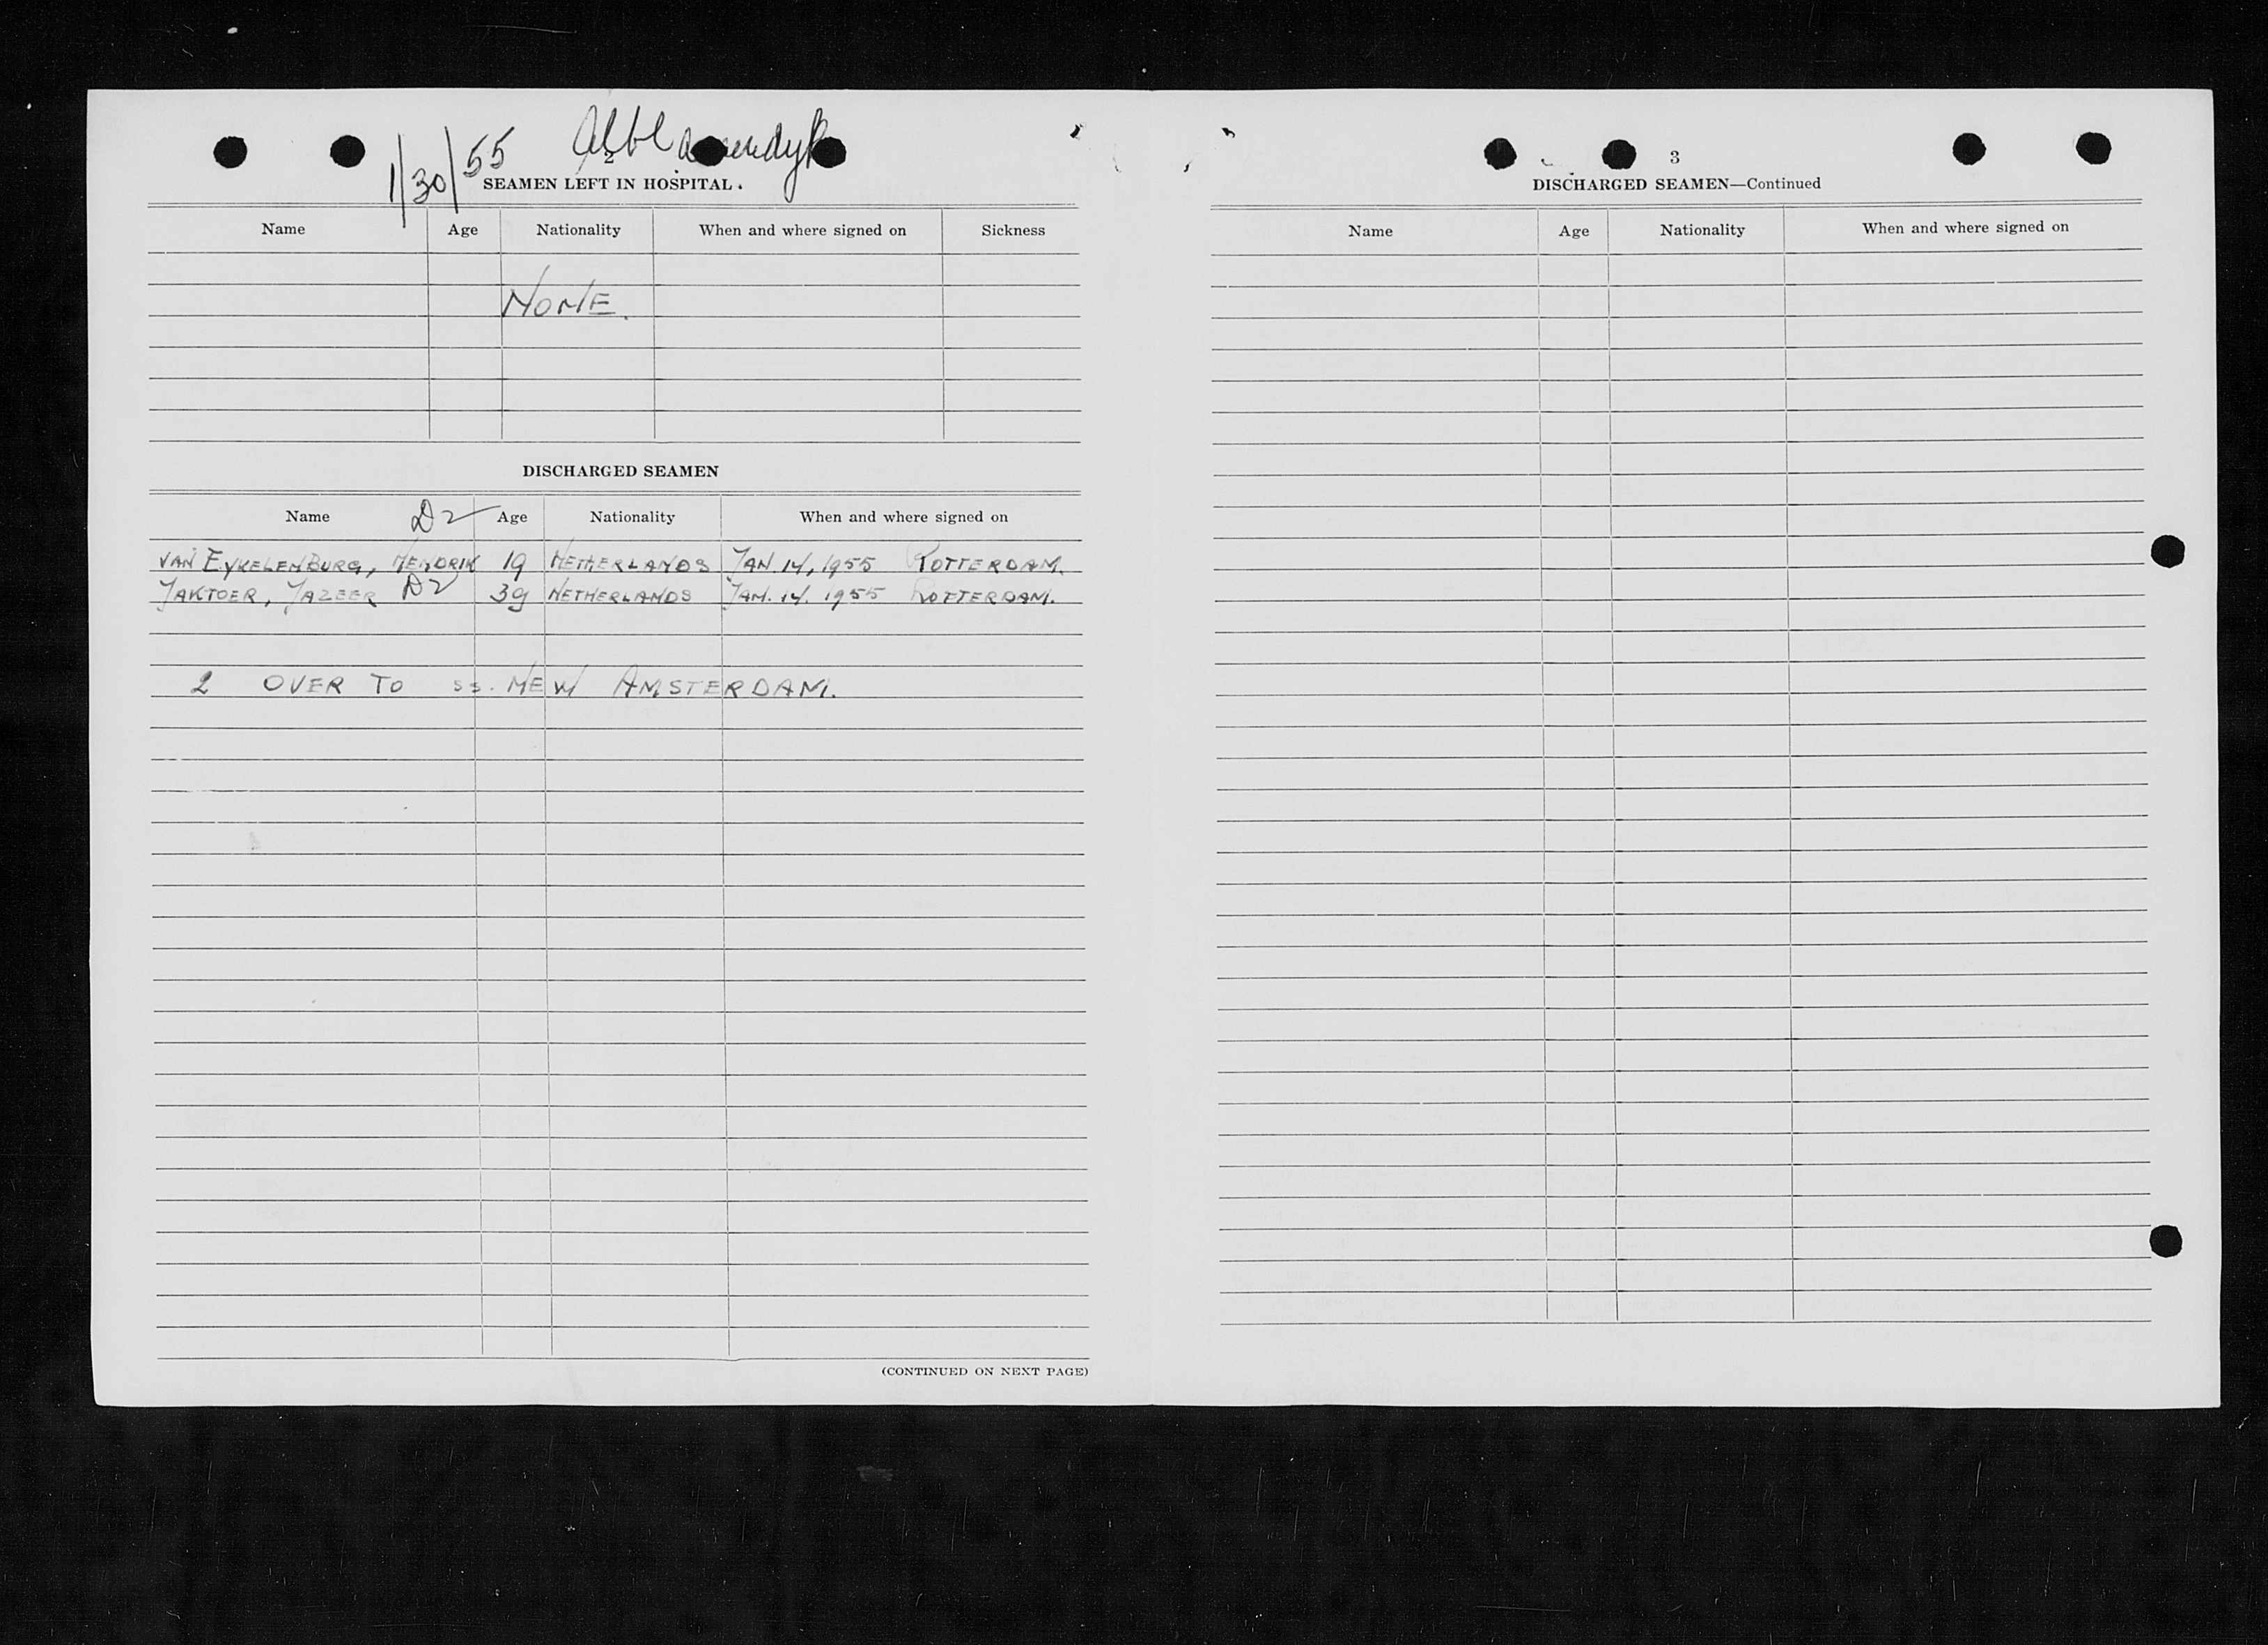 1/30/55 Alblasserdyk
2
SEAMEN LEFT IN HOSPITAL.
Name Age Nationality When and where signed on Sickness
NONE.
DISCHARGED SEAMEN
Name D2 Age Nationality When and where signed on
VAN EYKELENBURG, HENDRIK 19 NETHERLANDS JAN. 14, 1955 ROTTERDAM.
JAKTOER, JAZEER D2 39 NETHERLANDS JAN. 14. 1955 ROTTERDAM.
2 OVER TO ss. NEW AMSTERDAM.
(CONTINUED ON NEXT PAGE)
3
DISCHARGED SEAMEN—Continued
Name Age Nationality When and where signed on